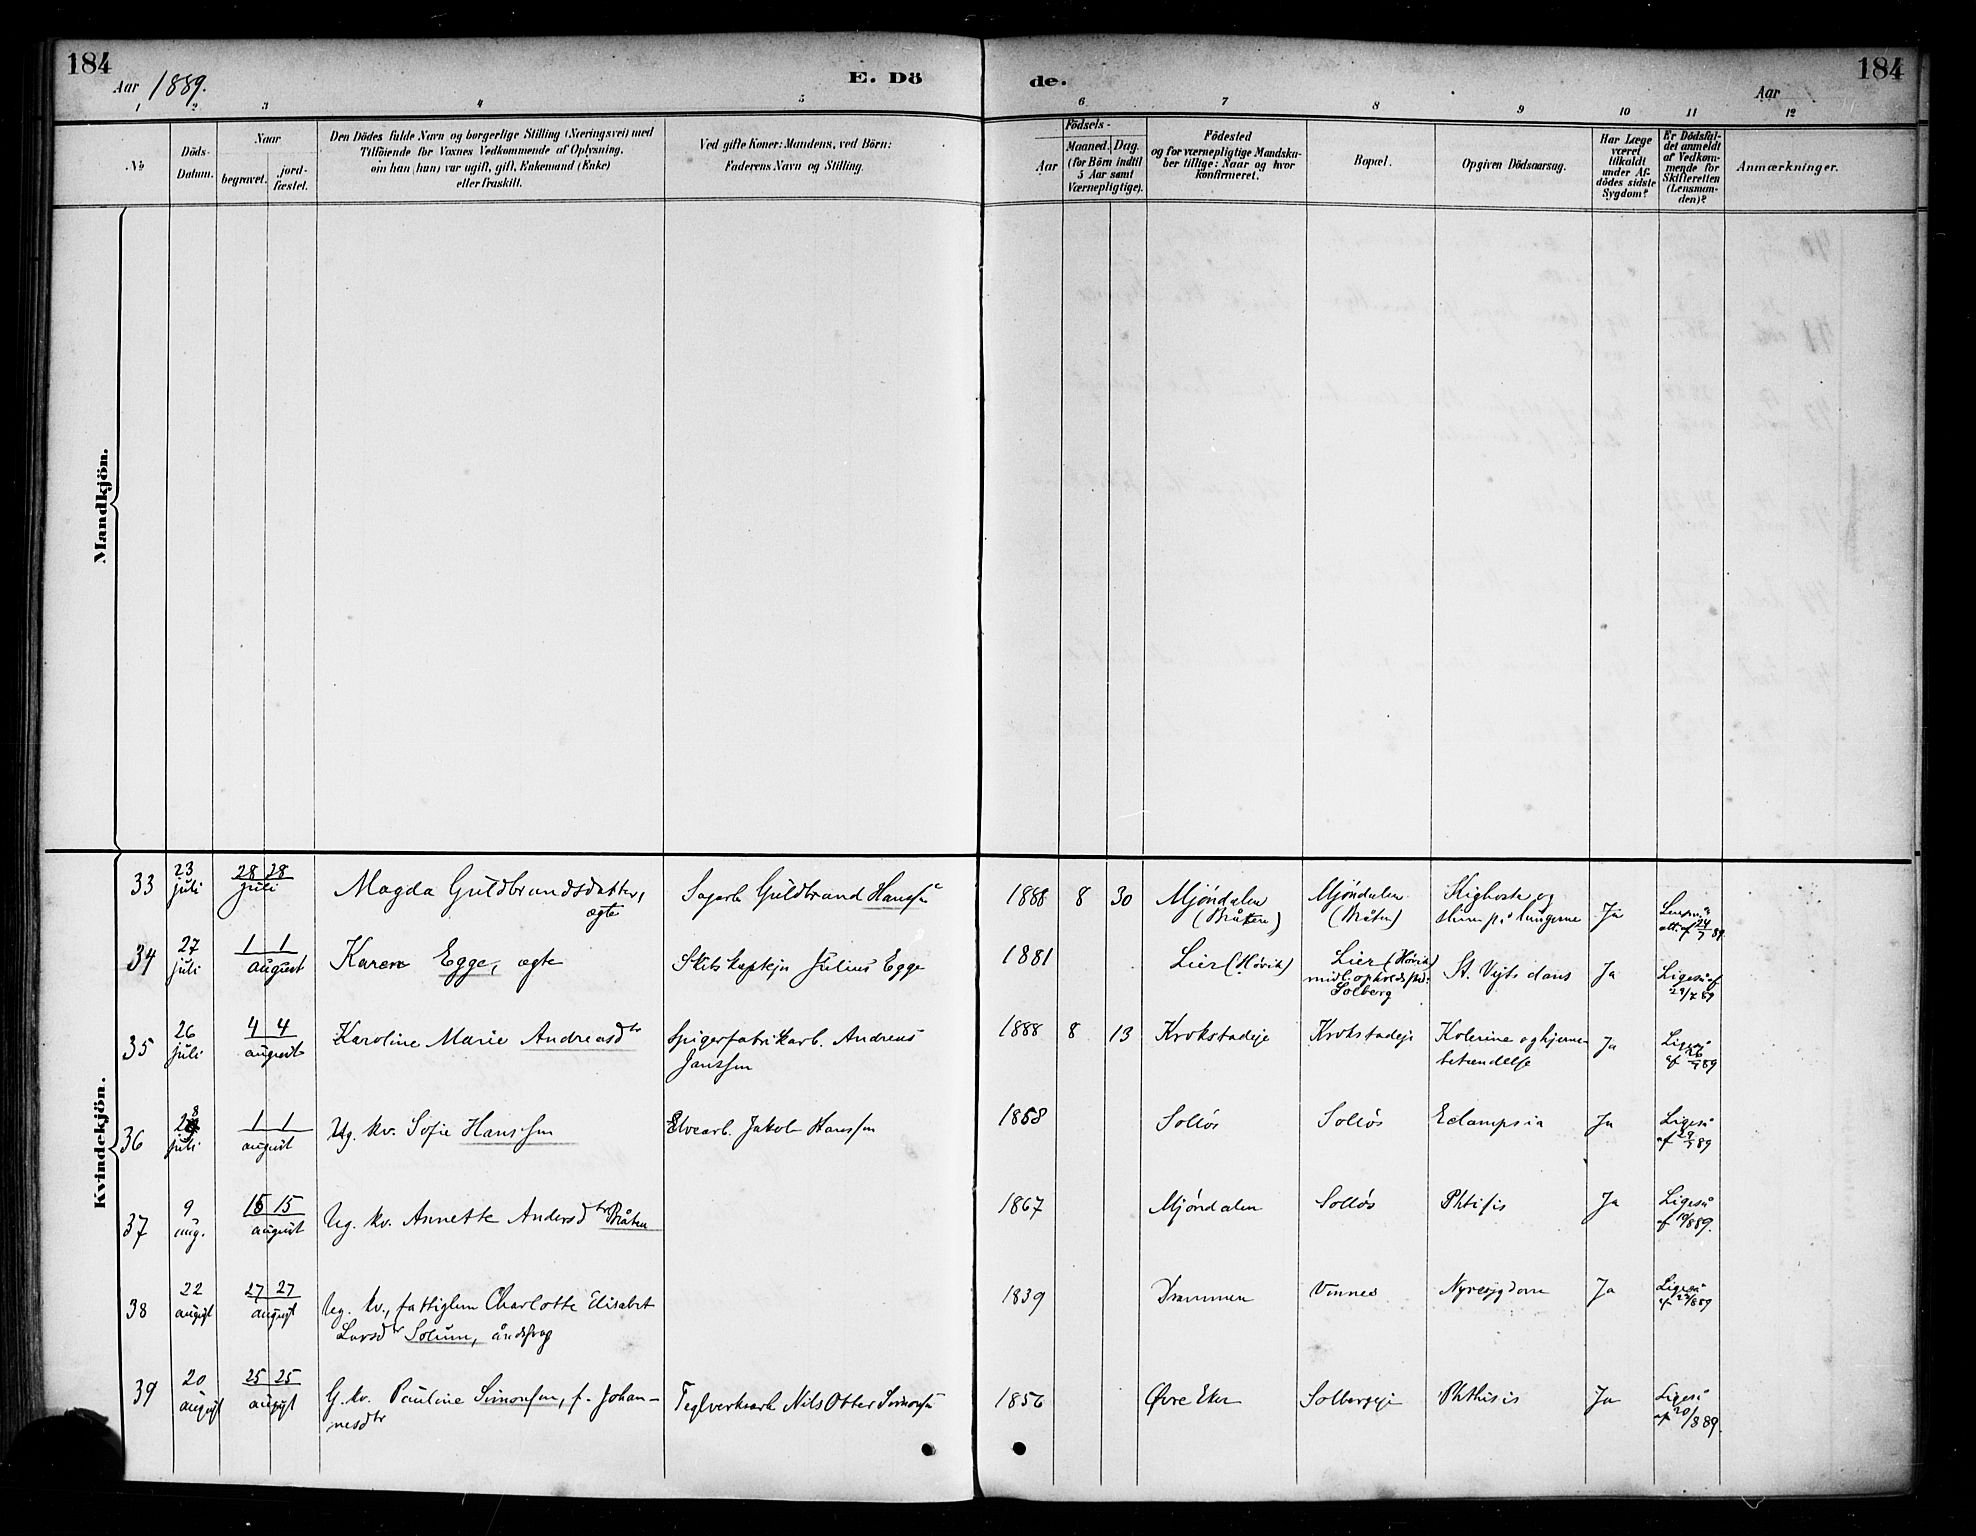 184
Aar 1889.
E. Dö
de.
Aar
184
1 2 3 4 5 6 7 8 9 10 11 12
No
Döds-
Datum.
Naar
begravet.
jord-
fæstet.
Den Dödes fulde Navn og borgerlige Stilling (Næringsvei) med
Tilföiende for Voxnes Vedkommende af Oplysning,
om han (hun) var ugift, gift, Enkemand (Enke)
eller fraskilt.
Ved gifte Koner: Mandens, ved Börn:
Faderens Navn og Stilling.
Födsels-
Aar
Maaned. Dag.
(for Börn indtil
5 Aar samt
Værnepligtige).
Födested
og for værnepligtige Mandska-
ber tillige: Naar og hvor
Konfirmeret.
Bopæl.
Opgiven Dödsaarsag.
Har Læge
været
tilkaldt
under Af-
dödes sidste
Sygdom?
Er Dödsfal-
det anmeldt
af Vedkom-
mende for
Skifteretten
(Lensman-
den)?
Anmærkninger.
Mandkjön.
Kvindekjön.
33 23 juli 28 28 juli Magda Guldbrandsdatter, ægte Sagarb Guldbrand Hanssen 1888 8 30 Mjöndalen (Bråten) Mjöndalen (Bråten) Kighoste og slim på lungerne Ja 24/7 89
34 27 juli 1 1 august Karen Egge, ægte Skibskaptejn Julius Egge 1881 Lier (Høvik) Lier (Høvik) midl. opholdssted: Solberg St. Vejts dans Ja Ligeså af 29/7 89
35 26 juli 4 4 august Karoline Marie Andreasdtr Spigerfabrikarb. Andreas Janssen 1888 8 13 Krokstadeje Krokstadeje Kolerine og hjerne-betændelse Ja Ligeså af 26/7 89
36 28 juli 1 1 august Ug. kv. Sofie Hanssen Elvearb. Jakob Hanssen 1868 Solløs Solløs Eclampsia Ja Ligeså af 29/7 89
37 9 aug. 15 15 august Ug. kv. Annette Andersdtr Bråten 1867 Mjöndalen Solløs Phtisis Ja Ligeså af 10/8 89.
38 22 august 27 27 august Ug. kv., fattiglem Charlotte Elisabet Larsdtr Solum, åndssvag 1839 Drammen Vinnes Nyresygdom Ja Ligeså af 22/8 89
39 20 august 25 25 august G. kv. Pauline Simonsen, f. Johan-nesdtr Teglverksarb Nils Otter Simonsen 1856 Øvre Eker Solbergeje Phthisis Ja Ligeså af 20/8 89.